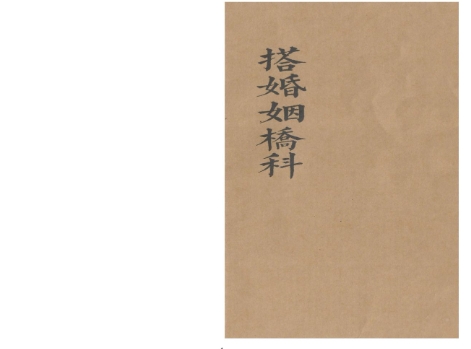 搭婚姻橋科